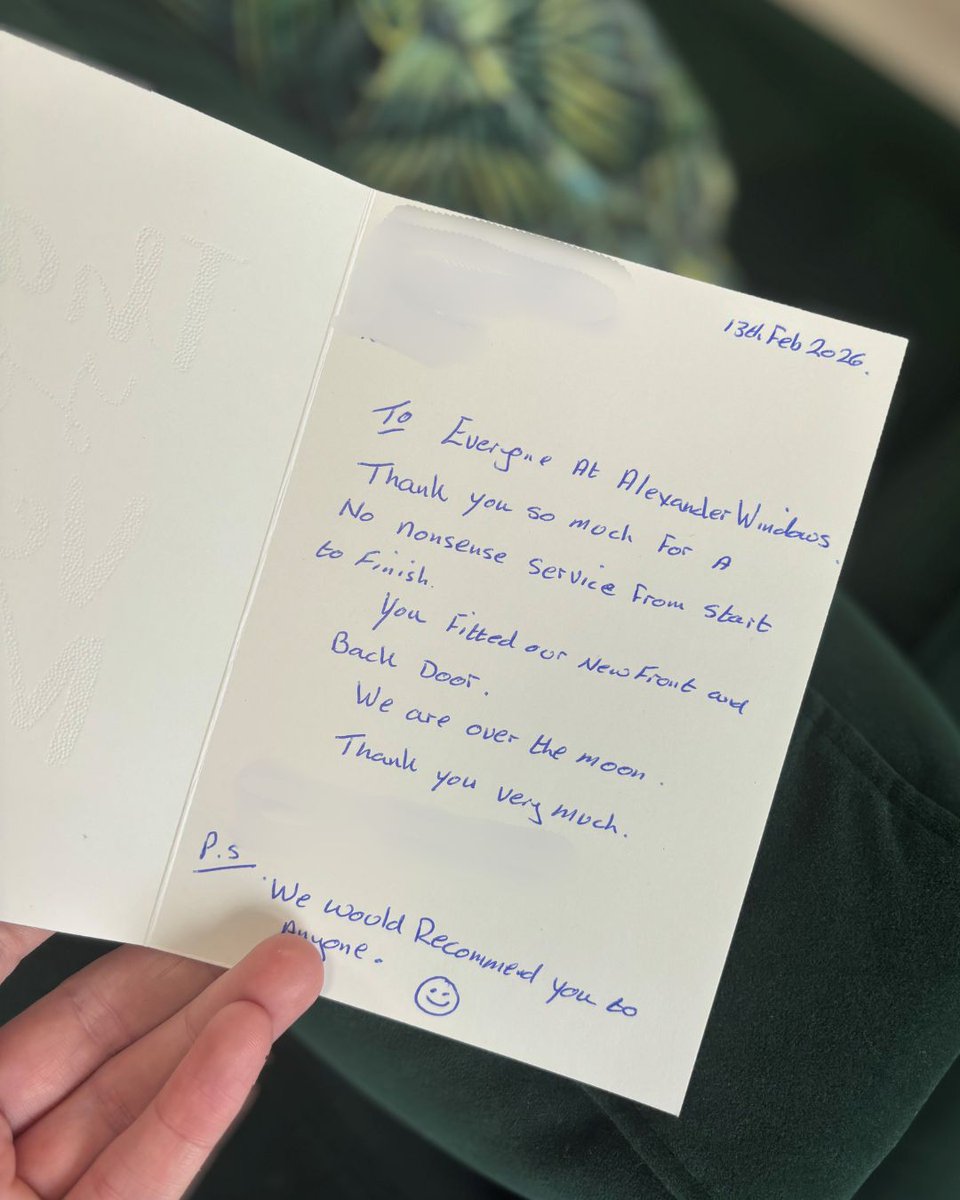 13th Feb 2026.
To Everyone At Alexander Windows.
Thank you so much For A
No nonsense Service From Start
to Finish.
You Fitted our New Front and
Back Door.
We are over the moon.
Thank you very much.
P.s
We would Recommend you to
Anyone.